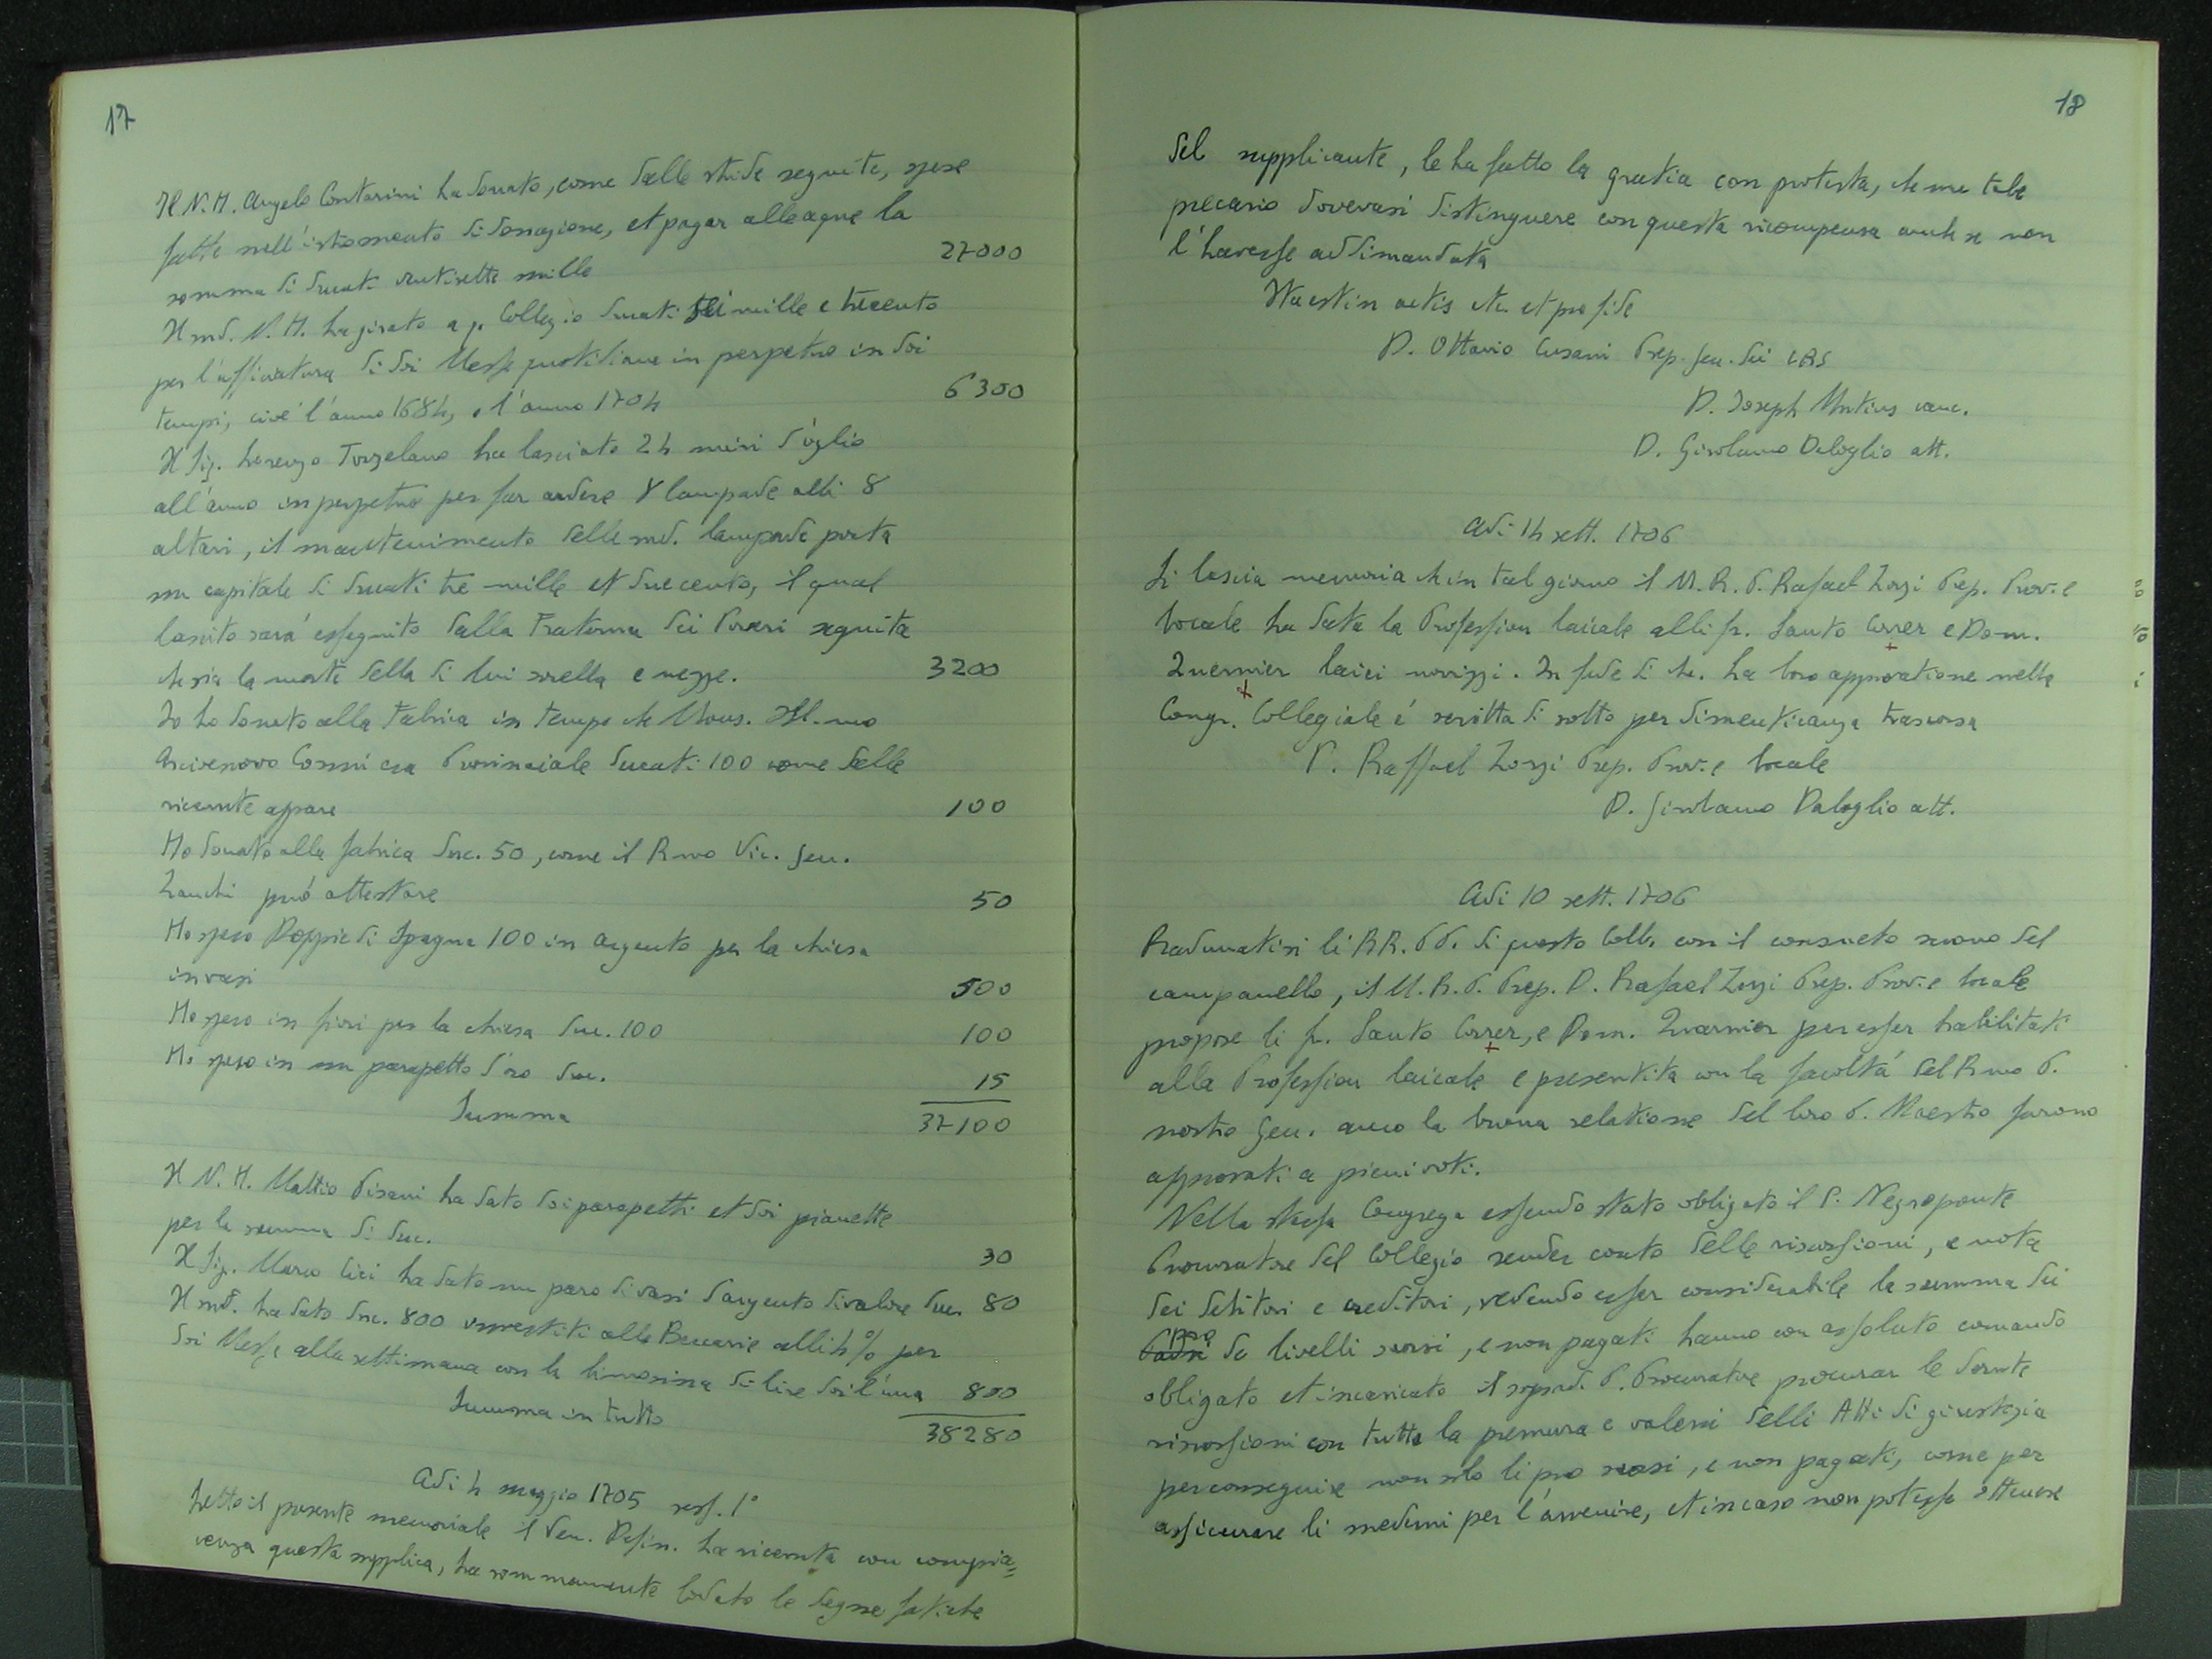 17
Il N.H. Angelo Contarini ha donato, come dalle stride seguite, spese
fatte nell'istromento di donazione, et pagar alle aque la
somma di ducati ventisette mille 27000
Il md. N.H. ha girato a q. Collegio ducati sei mille e trecento
per l'uffiziatura di doi Messe quotidiane in perpetuo in doi
tempi, cioè l'anno 1684, e l'anno 1704 6300
Il Sig. Lorenzo Torzelano ha lasciato 24 miri d'oglio
all'anno in perpetuo per far ardere 8 lampade alli 8
altari, il mantenimento delle md. lampade porta
un capitale di ducati tre mille et duecento, il qual
lascito sarà esseguito dalla Fraterna dei Poveri seguita
che sia la morte della di lui sorella e nezze. 3200
Io ho donato alla Fabrica in tempo che Mons. Ill.mo
Arcivescovo Cosmi era Provinciale ducati 100 come dalle
ricevute appare 100
Ho donato alla fabrica duc. 50, come il R.mo Vic. Gen.
Zanchi può attestare 50
Ho speso Doppie di Spagna 100 in argento per la chiesa
in vasi 500
Ho speso in fiori per la chiesa duc. 100 100
Ho speso in un parapetto d'oro duc. 15
Summa 37100
Il N.H. Mattio Pisani ha dato doi parapetti et doi pianette
per la summa di duc. 30
Il Sig. Marco Cici ha dato un paro di vasi d'argento di valore duc. 80
Il md. ha dato duc. 800 investiti alle Beccarie alli 4% per
doi Messe alla settimana con la limosina di lire doi l'una 800
Summa in tutto 38280
Adi 4 maggio 1705 sess. 1°
Letto il presente memoriale il Ven. Defin. ha ricevuta con compia=
cenza questa supplica, ha sommamente lodato le degne fatiche
18
del supplicante, le ha fatto la gratia con protesta, che un tale
precario dovevasi distinguere con questa ricompensa anche se non
l'havesse addimandata
Ita est in actis etc. et pro fide
D. Ottavio Cusani Prep. Gen. dei CRS
D. Joseph Mutius canc.
D. Girolamo Daloglio att.
Adi 14 sett. 1706
Si lascia memoria ch in tal giorno il M.R.P. Rafael Zorzi Prep. Prov. e
locale ha data la Professione laicale alli fr. Santo Correr e Dom.
Zuernier laici novizzi. In fede di che. ha loro approvatione nella
Congr. Collegiale é scritta di sotto per dimenticanza trascorsa
P. Raffael Zorzi Prep. Prov. e locale
D. Girolamo Daloglio att.
Adi 10 sett. 1706
Radunatisi li RR. PP. di questo Coll. con il consueto suono del
campanello, il M.R.P. Prep. D. Rafael Zorzi Prep. Prov. e locale
propose li fr. Santo Correr, e Dom. Zuarnier per esser habilitati
alla Professione laicale e presentita con la facoltà del R.mo P.
nostro Gen. anco la buona relatione del loro P. Maestro furono
approvati a pieni voti.
Nella stessa Congrega essendo stato obligato il P. Negroponte
Procuratore del Collegio render conto delle riscossioni, e nota
dei debitori e creditori, vedendo esser considerabile la summa dei
Pro de livelli scorsi, e non pagati hanno con assoluto comando
obligato et incaricato il soprad. P. Procuratore procurar le dovute
riscossioni con tutta la premura e valersi delli Atti di giustizia
per conseguire non solo li pro scorsi, e non pagati, come per
assicurare li medemi per l'avvenire, et in caso non potesse ottenere